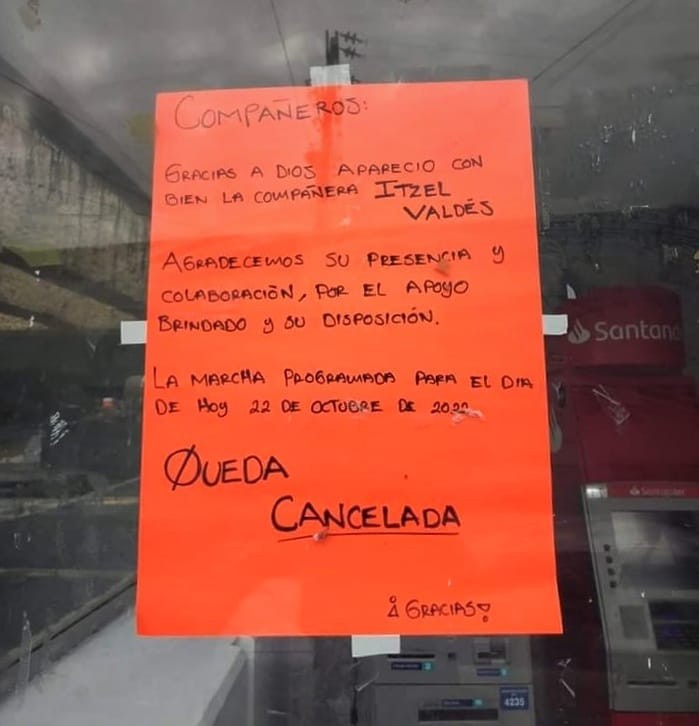 COMPAÑEROS:
GRACIAS A DIOS APARECIO CON
BIEN LA COMPAÑERA ITZEL
VALDÉS
AGRADECEMOS SU PRESENCIA Y
COLABORACIÓN, POR EL APOYO
BRINDADO Y SU DISPOSICIÓN.
LA MARCHA PROGRAMADA PARA EL DIA
DE HOY 22 DE OCTUBRE DE
QUEDA
CANCELADA
¡GRACIAS!
Santand
Santander
4235